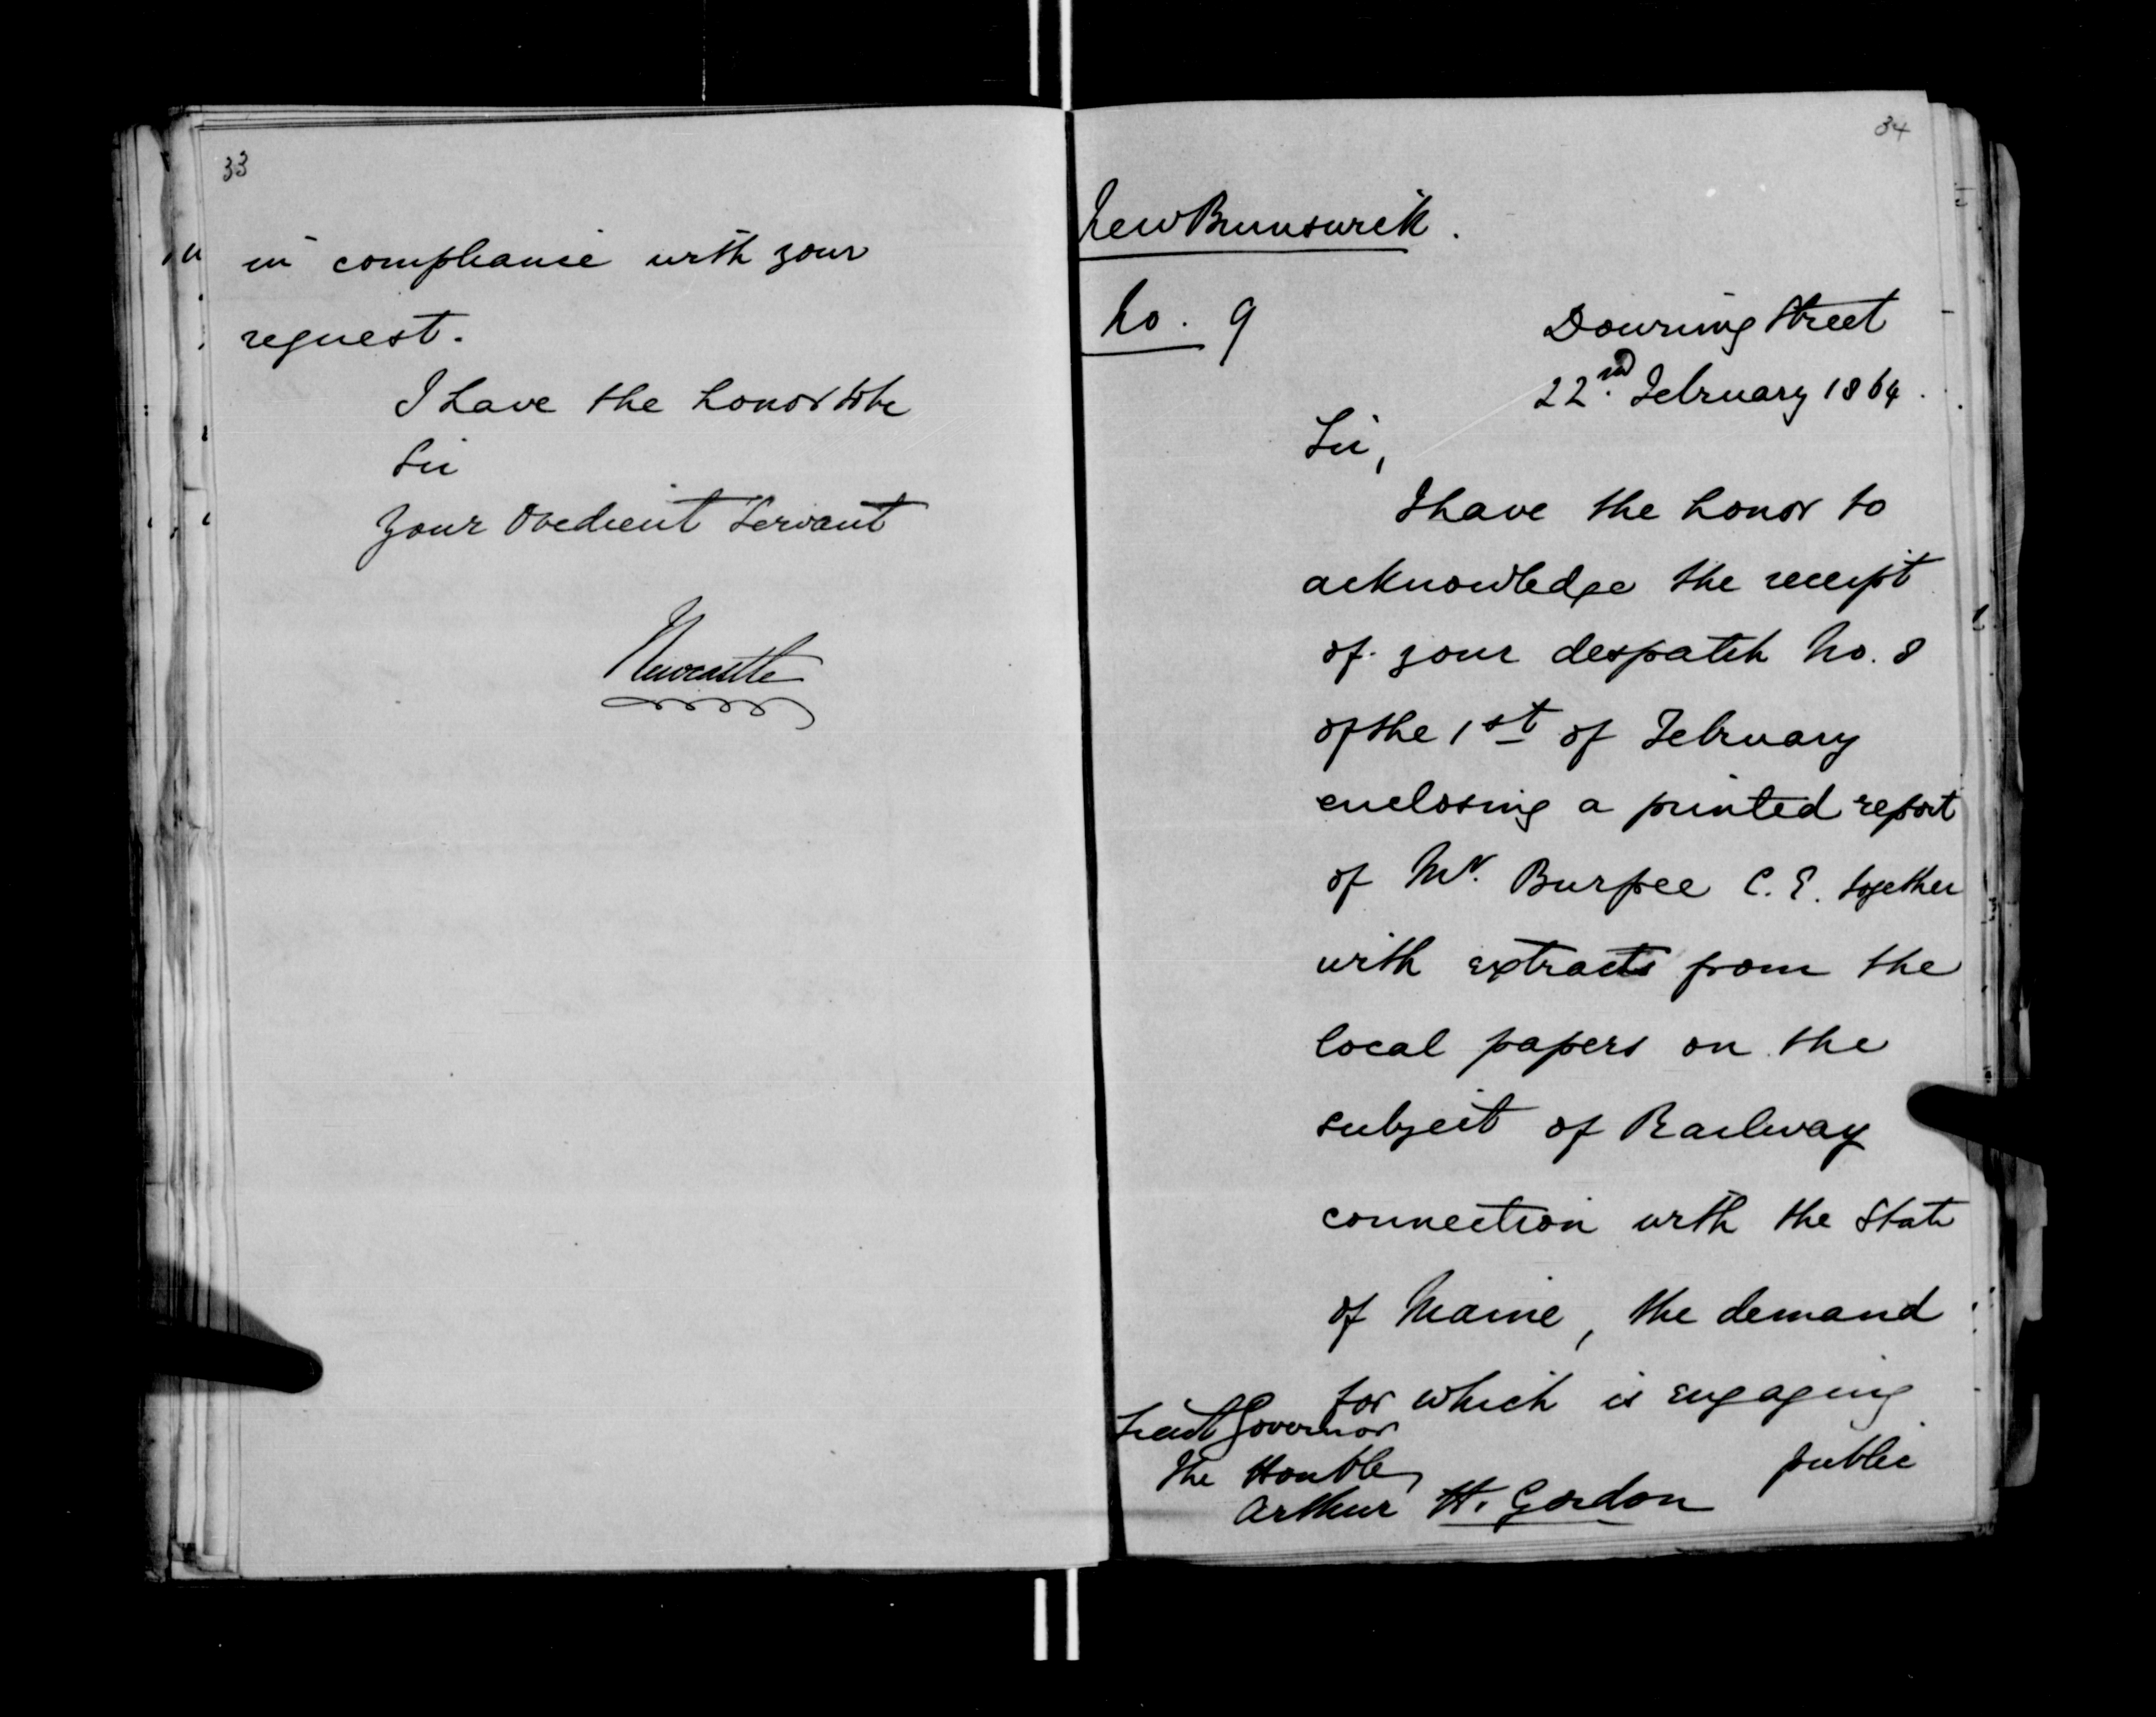 33
in compliance with your
request.
I have the honor to be
Sir
Your Obedient Servant
Newcastle
34
New Brunswick.
No. 9
Downing Street
22nd. February 1864.
Sir,
I have the honor to
acknowledge the receipt
of your despatch No. 8
of the 1st of February
enclosing a printed report
of Mr. Burpee C. E. together
with extracts from the
local papers on the
subject of Railway
connection with the State
of Maine, the demand
for which is engaging
public
Lieut Governor
The Honble
Arthur H. Gordon